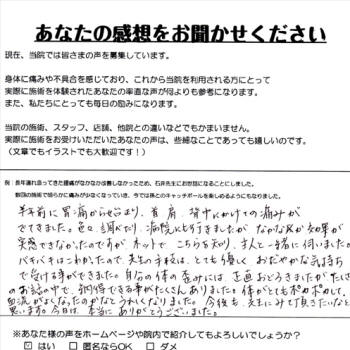 あなたの感想をお聞かせください
現在、当院では皆さまの声を募集しています。
身体に痛みや不具合を感じており、これから当院を利用される方にとって
実際に施術を体験されたあなたの率直な声が何よりも参考になります。
また、私たちにとっても毎日の励みになります。
当院の施術、スタッフ、店舗、他院との違いなどでもかまいません。
実際に施術をお受けいただいたあなたの声は、些細なことであっても嬉しいのです。
(文章でもイラストでも大歓迎です!)
例:長年連れ添ってきた腰痛がなかなか改善しなかったため、石井先生にお世話になることにしました。
数回の施術で明らかに痛みが少なくなっていき、今では孫とのキャッチボールを楽しめるようになりました。
半年前に胃痛から始まり、首、肩、背中にかけての痛みが
でてきました。色々調べたり、病院にも行きましたが なかなか効果が
実感できなかったのですが、ネットで こちらを知り、主人と一緒に伺いました。
バキバキはこわかったので、先生の手技は、とても優しく おだやかな気持ち
で受ける事ができました。自分の体の歪みには 正直おどろきましたが、先生
のお話の中で、納得できる事がたくさんありました。体がとてもポカポカして、
血流がよくなったのかなとうれしくなりました。今後も、先生にみて頂きたいなと
思います。今日は、本当に ありがとうございました。
※あなた様の声をホームページや院内で紹介してもよろしいでしょうか?
☑ はい □ 匿名ならOK □ ダメ